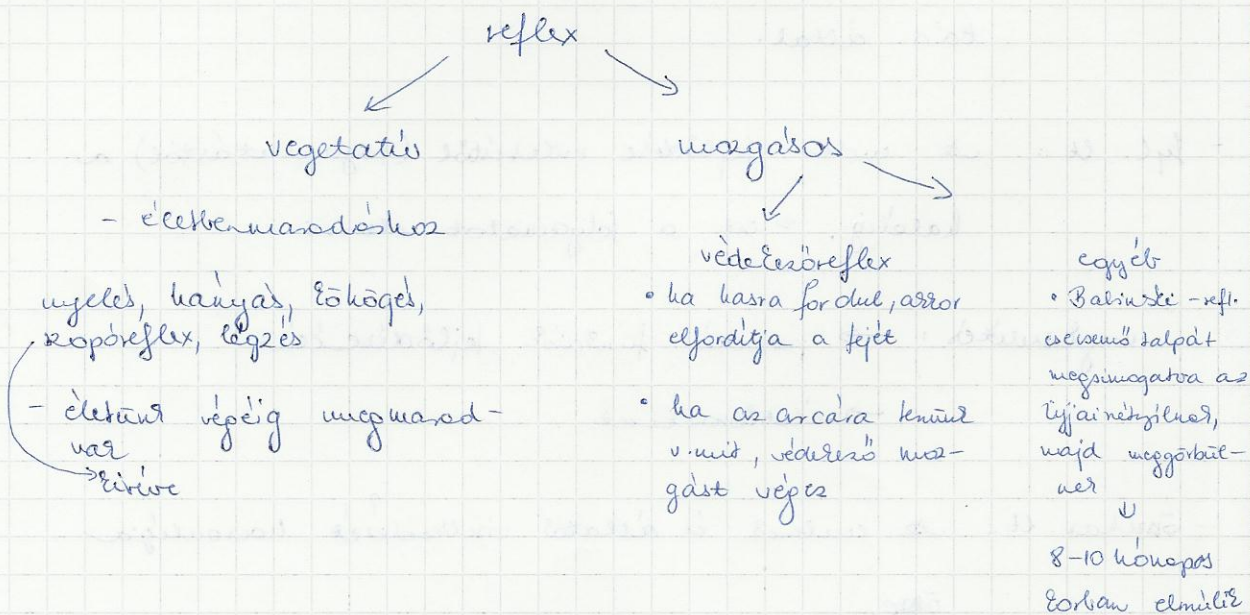 reflex
vegetatív
- életbenmaradáshoz
nyelés, hányás, köhögés,
szopóreflex, légzés
- életünk végéig megmarad-
nak
kivéve
mozgásos
védekezőreflex
• ha hasra fordul, akkor
elfordítja a fejét
• ha az arcára teszünk
v.mit, védekező moz-
gást végez
egyéb
• Babinski-refl.
csecsemő talpát
megsimogatva az
ujjai szétnyílnak,
majd meggörbül-
nek
8-10 hónapos
korban elmúlik